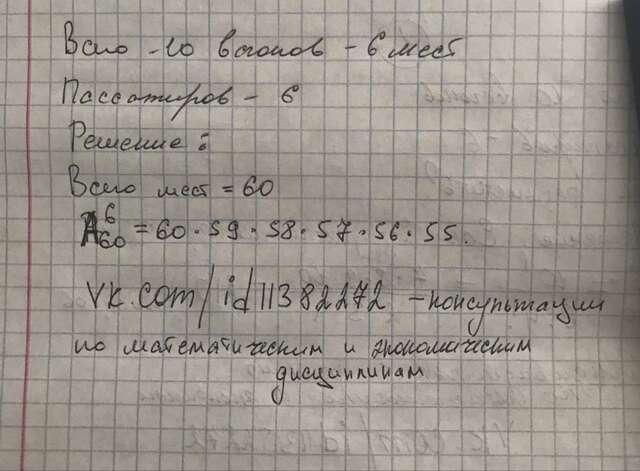 Всего - 10 вагонов - 6 мест
Пассажиров - 6
Решение:
Всего мест = 60
A⁶₆₀ = 60 · 59 · 58 · 57 · 56 · 55.
vk.com/id11382272 - консультации
по математическим и экономическим
дисциплинам